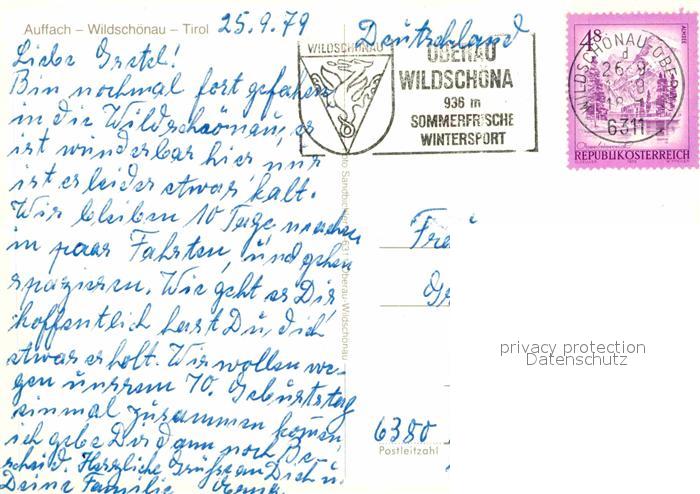 Auffach – Wildschönau – Tirol
25.9.79
Deutschland
Liebe Gretel!
Bin nochmal fort gefahren
in die Wildschöönau, es
ist wunderbar hier nur
ist es leider etwas kalt.
Wir bleiben 10 Tage machen
in paar Fahrten, und gehen
spazieren. Wie geht es Dir
hoffentlich hast Du, dich
etwas erholt. Wir wollen we-
gen unsrem 70. Geburtstag
einmal zusammen kommen
ich gebe Dir dann noch Be-
scheid. Herzliche Grüsse an Dich u.
Deine Familie
WILDSCHÖNAU
OBERAU
WILDSCHÖNA
936 m
SOMMERFRISCHE
WINTERSPORT
WILDSCHÖNAU-OBERAU
6311
4S
REPUBLIK ÖSTERREICH
Fre
Gr
6380
Postleitzahl
privacy protection
Datenschutz